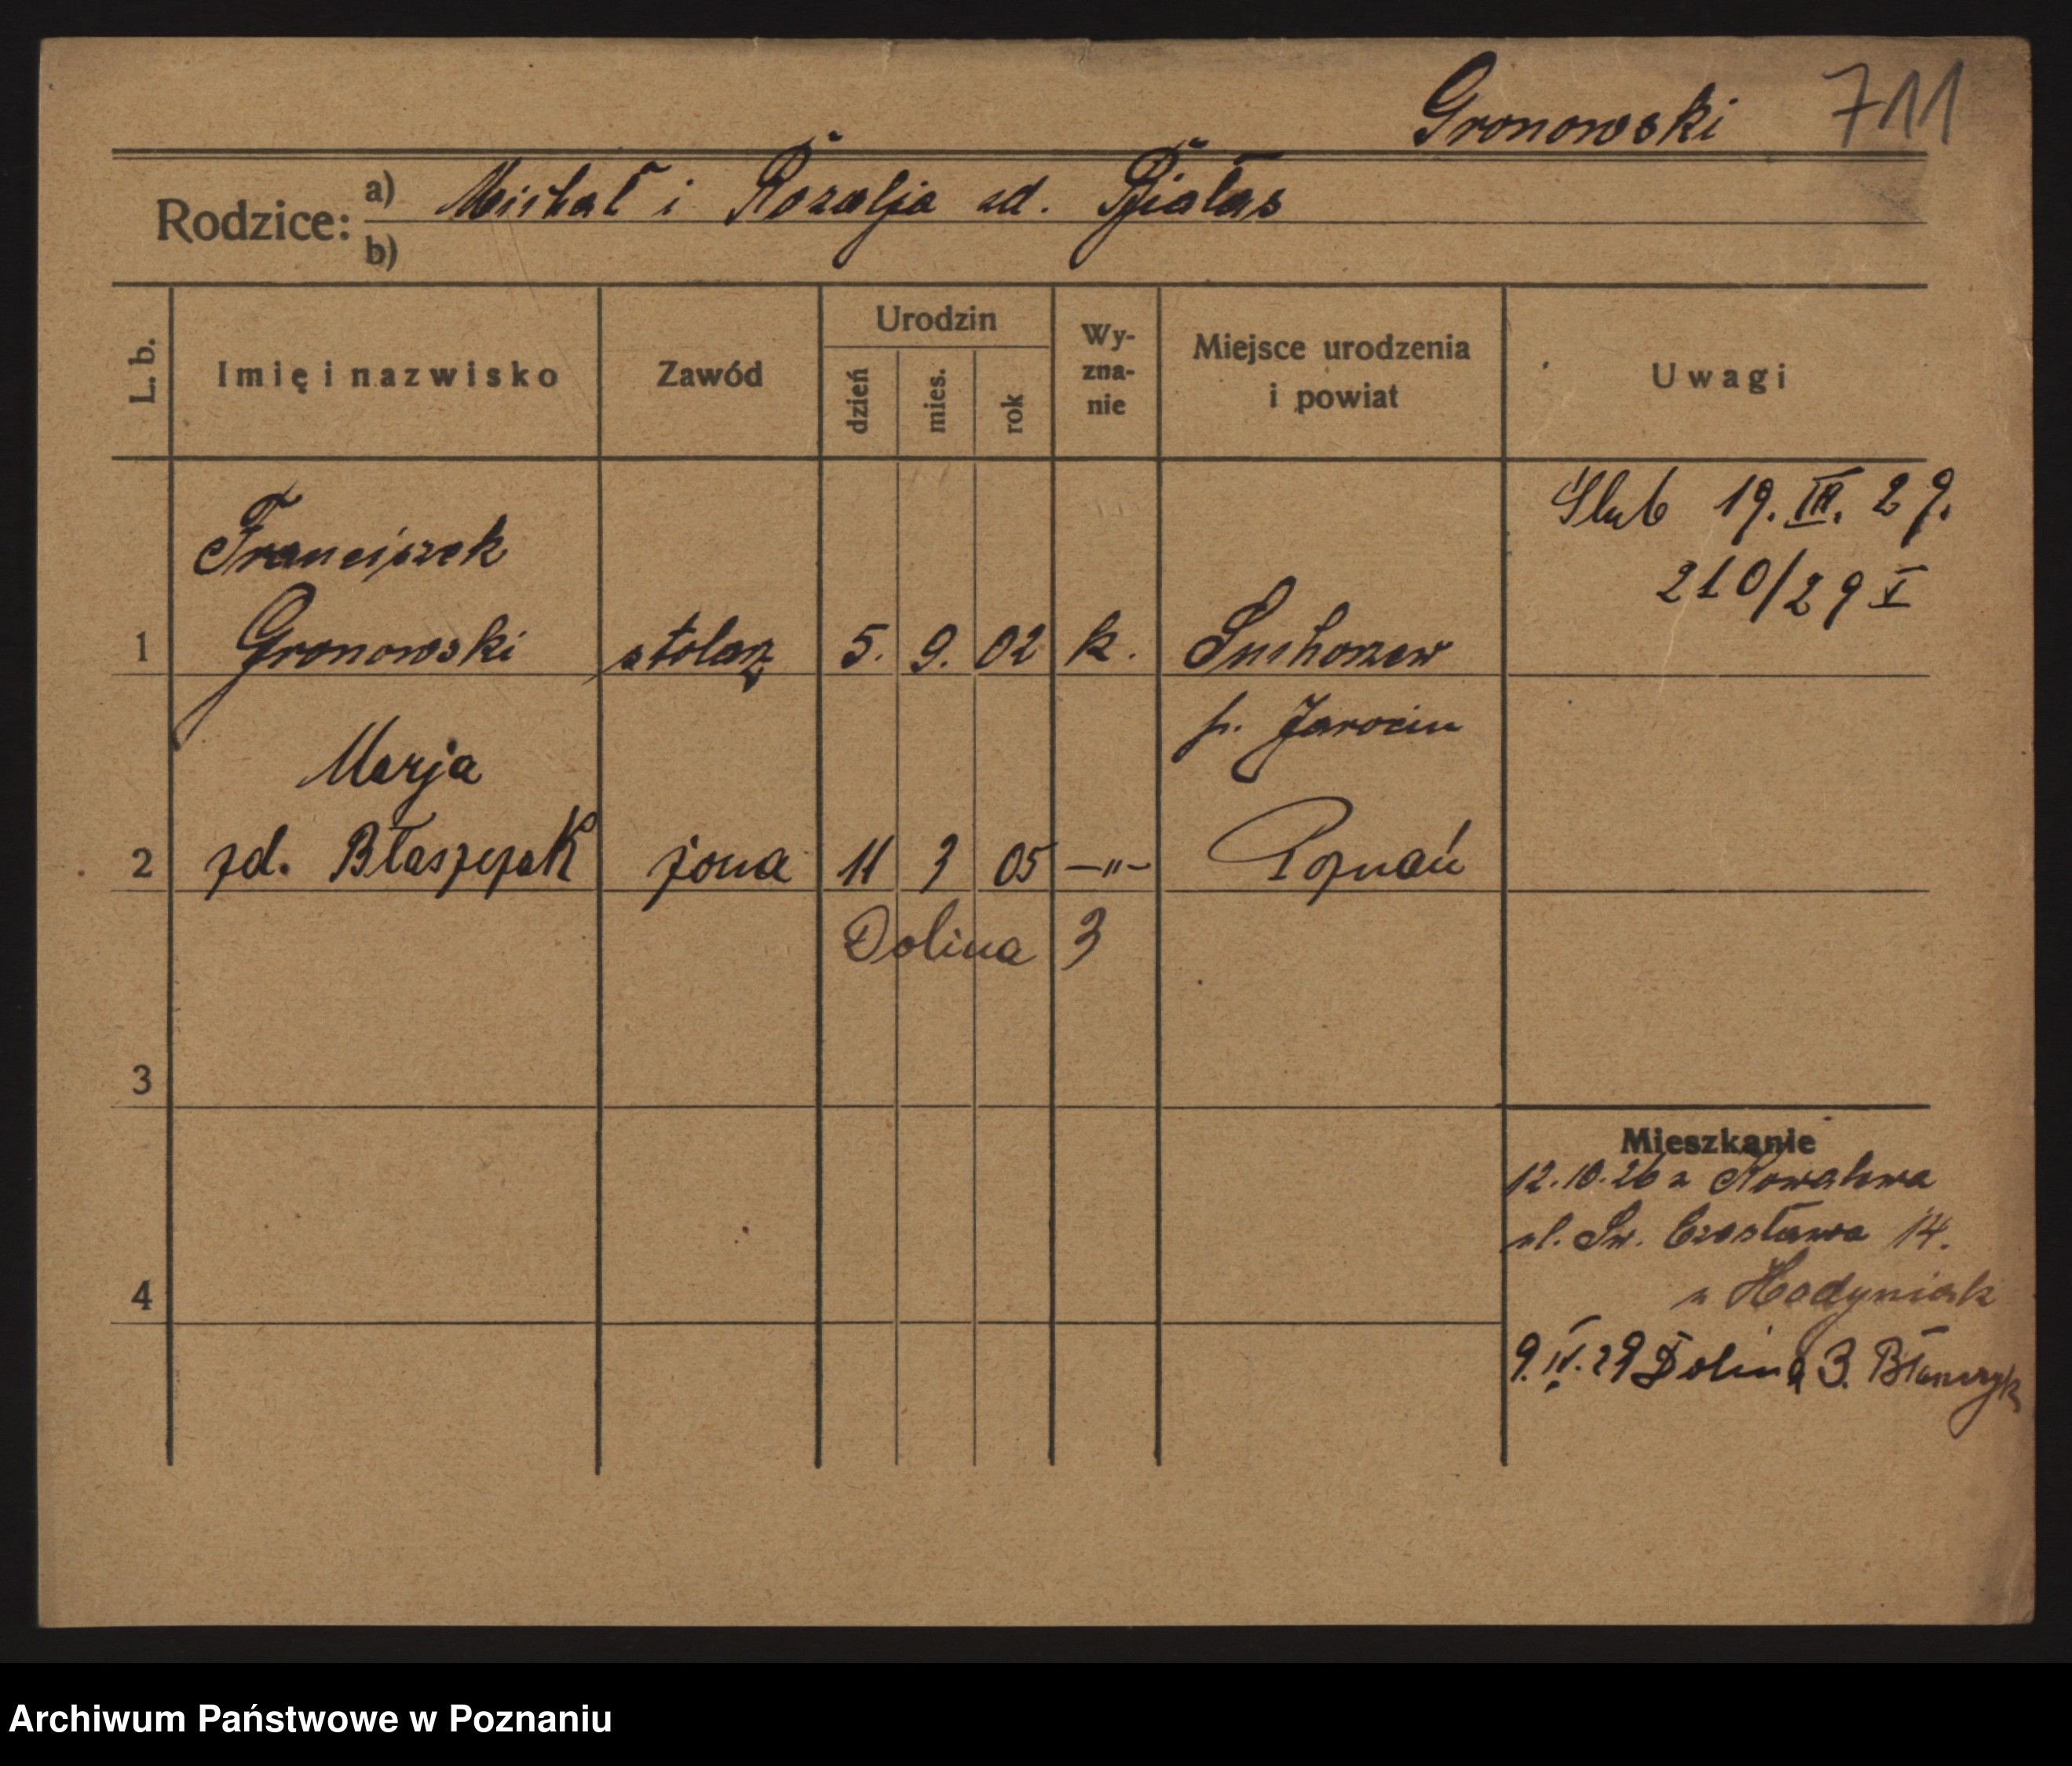 Gronowski 711
Rodzice: a) Michał i Rozalja zd. Białas
b)
L. b. Imię i nazwisko Zawód Urodzin dzień mies. rok Wy-zna-nie Miejsce urodzenia i powiat Uwagi
Ślub 19. III. 29.
210/29 V
Franciszek
1 Gronowski stolarz 5. 9. 02 k. Suchorzew
p. Jarocin
Marja
2 zd. Błaszczak żona 11 3 05 —"— Poznań
Dolina 3
3
Mieszkanie
12.10.26 z Kowalewa
ul. Św. Czesława 14.
4
9. IV. 29 Dolina 3.
Archiwum Państwowe w Poznaniu